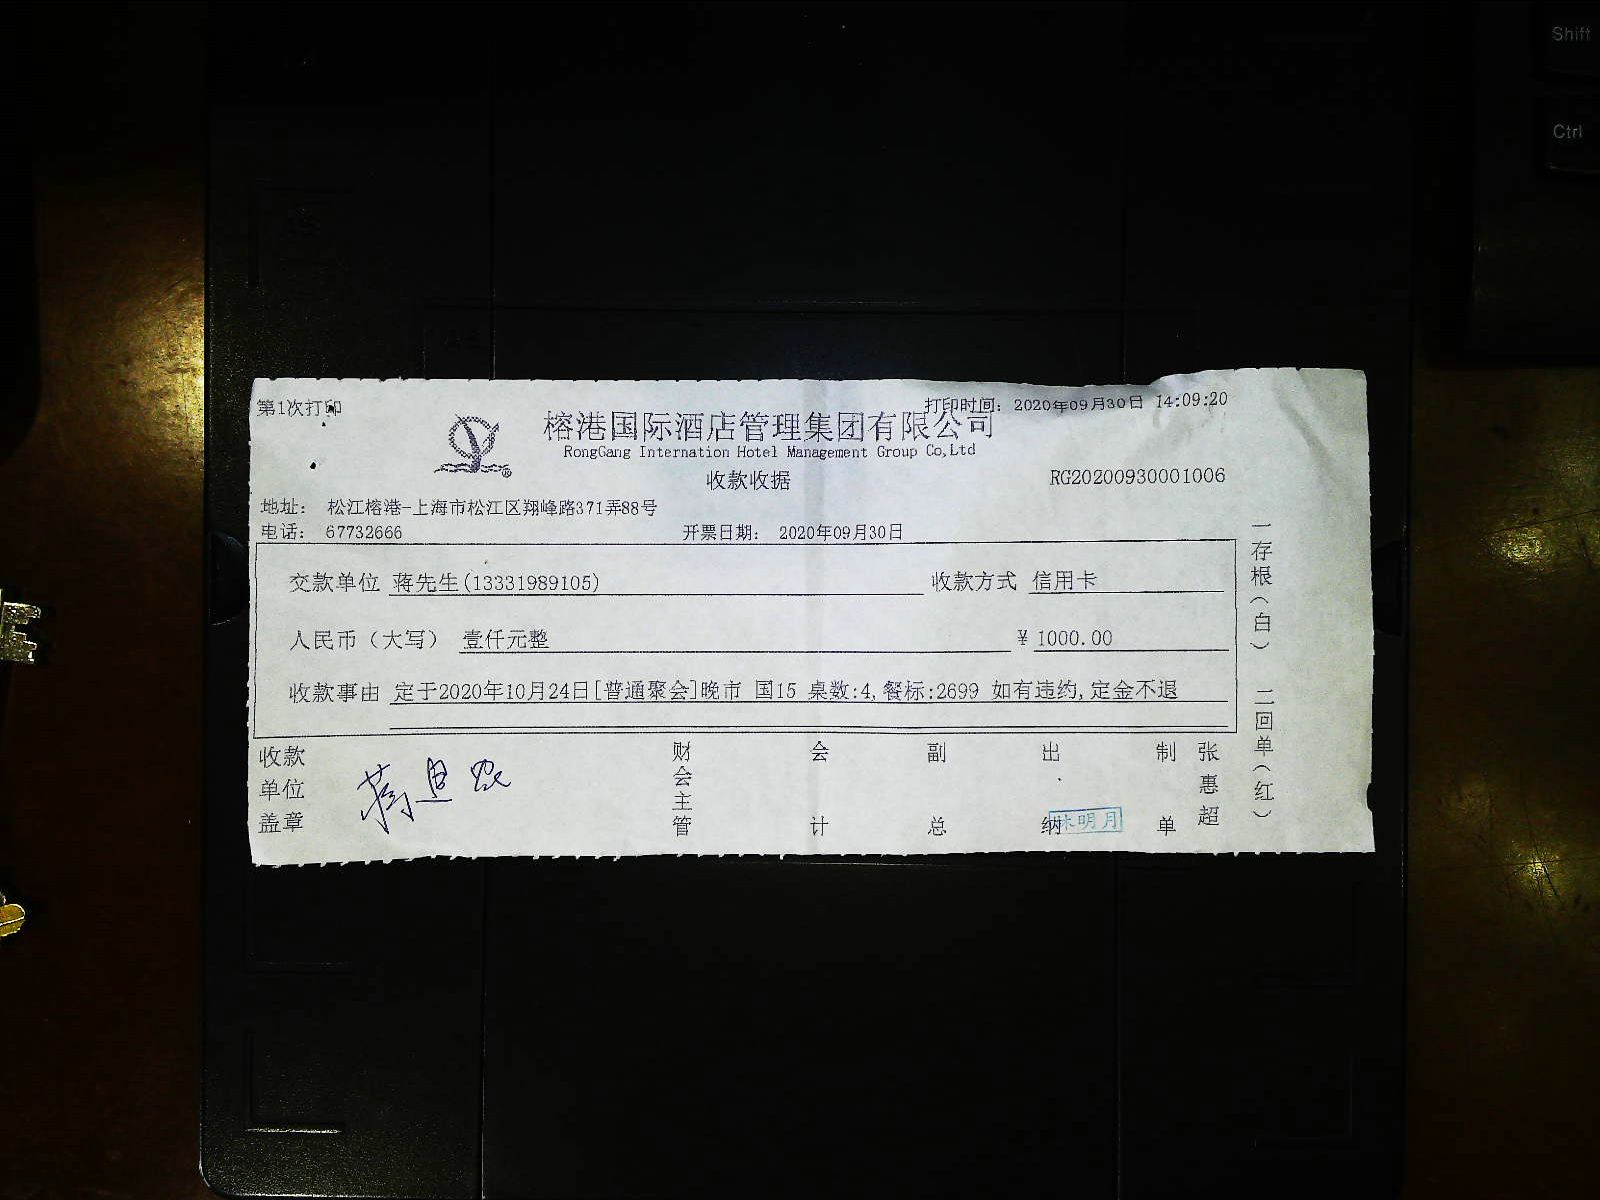 Shift
Ctrl
第1次打印
打印时间: 2020年09月30日 14:09:20
榕港国际酒店管理集团有限公司
RongGang Internation Hotel Management Group Co,Ltd
收款收据
RG20200930001006
地址: 松江榕港-上海市松江区翔峰路371弄88号
电话: 67732666
开票日期: 2020年09月30日
交款单位 蒋先生(13331989105) 收款方式 信用卡
人民币(大写) 壹仟元整 ¥ 1000.00
收款事由 定于2020年10月24日[普通聚会]晚市 国15 桌数:4,餐标:2699 如有违约,定金不退
收款单位盖章
财会主管
会计
副总
出纳
明月
制单
张惠超
一存根(白) 二回单(红)